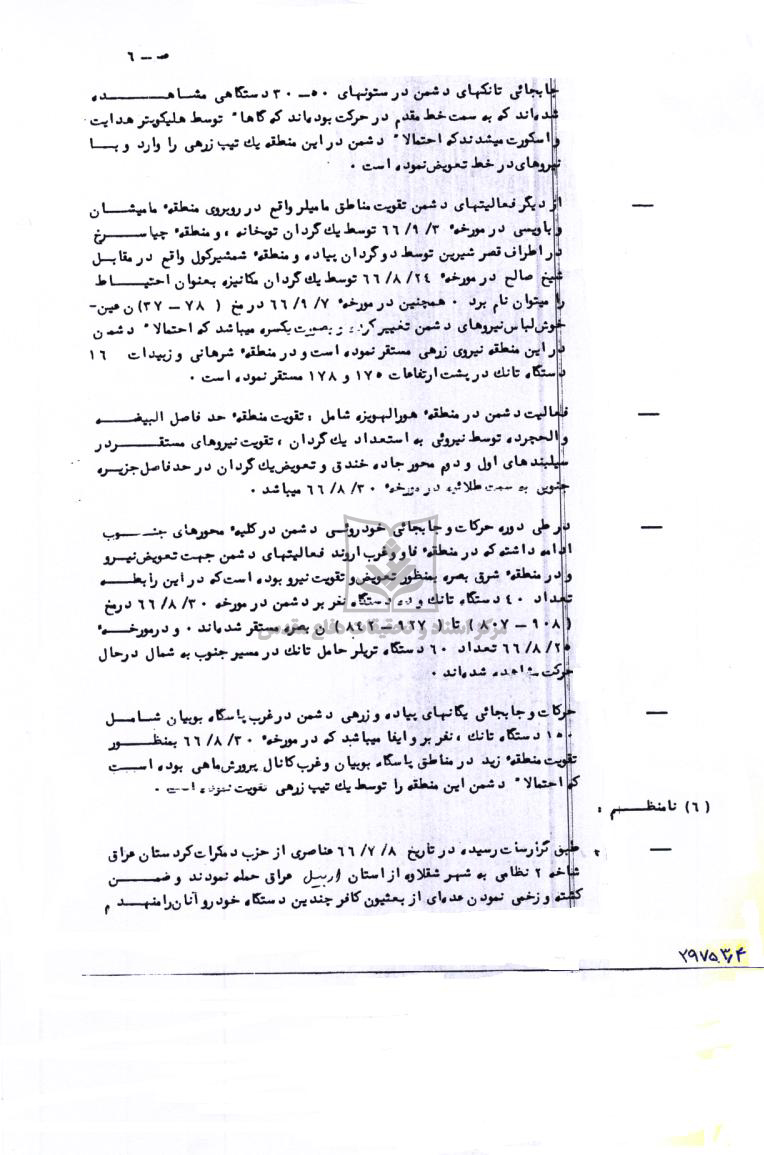 ص ــ ٦
جابجائی تانکهای دشمن در ستونهای ٥٠ــ ٣٠ دستگاهی مشاهــــــده
شده‌اند که به سمت خط مقدم در حرکت بوده‌اند که گاها" توسط هلیکوپتر هدایت
و اسکورت میشدند که احتمالا" دشمن در این منطقه یك تیپ زرهی را وارد و بــا
نیروهای در خط تعویض نموده است ۰
— از دیگر فعالیتهای دشمن تقویت مناطق مامیلر واقع در روبروی منطقه مامیشــان
و باویسی در مورخه ٣ /٩ /٦٦ توسط یك گردان توپخانه ، و منطقه چیاســـرخ
در اطراف قصر شیرین توسط دو گردان پیاده و منطقه شمشیرکول واقع در مقابــل
شیخ صالح در مورخه ٢٤ /٨ /٦٦ توسط یك گردان مکانیزه بعنوان احتیــــاط
را میتوان نام برد ۰ همچنین در مورخه ٧ /٩ /٦٦ در مخ ( ٧٨ ــ ٣٧) ن عین-
خوش لباس نیروهای دشمن تغییر کرده و بصورت یکسره میباشد که احتمالا" دشمـن
در این منطقه نیروی زرهی مستقر نموده است و در منطقه شرهانی و زبیدات ١٦
دستگاه تانك در پشت ارتفاعات ١٧٥ و ١٧٨ مستقر نموده است ۰
— فعالیت دشمن در منطقه هورالهویزه شامل : تقویت منطقه حد فاصل البیضـــه
و الحجرده توسط نیروئی به استعداد یك گردان ، تقویت نیروهای مستقـــــردر
سیلبندهای اول و دوم محور جاده خندق و تعویض یك گردان در حد فاصل جزیــره
جنوبی به سمت طلائیه در مورخه ٣٠ /٨ /٦٦ میباشد ۰
— در طی دوره حرکات و جابجائی خودروئی دشمن در کلیه محورهای جنـــوب
ادامه داشته که در منطقه فاو و غرب اروند فعالیتهای دشمن جهت تعویض نیــرو
و در منطقه شرق بصره بمنظور تعویض و تقویت نیرو بوده است که در این رابطــه
تعداد ٤٠ دستگاه تانك و ده دستگاه نفر بر دشمن در مورخه ٣٠ /٨ /٦٦ در مخ
( ٩٠٨ ــ ٨٠٧ ) تا ( ٩٦٧ ــ ٨٤٢ )ن بصره مستقر شده‌اند ۰ و در مورخـــه
٢٥ /٨ /٦٦ تعداد ٦٠ دستگاه تریلر حامل تانك در مسیر جنوب به شمال در حال
حرکت مشاهده شده‌اند ۰
مرکز اسناد و تحقیقات دفاع مقدس
— حرکات و جابجائی یگانهای پیاده و زرهی دشمن در غرب پاسگاه بوبیان شامــل
١٥٠ دستگاه تانك ، نفر بر و ایفا میباشد که در مورخه ٣٠ /٨ /٦٦ بمنظـــور
تقویت منطقه زید در مناطق پاسگاه بوبیان و غرب کانال پرورش ماهی بوده اســت
که احتمالا" دشمن این منطقه را توسط یك تیپ زرهی تقویت نموده است ۰
(٦) نامنظــــم :
— طبق گزارسات رسیده در تاریخ ٨ /٧ /٦٦ عناصری از حزب دمکرات کردستان عراق
شاخه ٢ نظامی به شهر شقلاوه از استان اربیل عراق حمله نمودند و ضمـــن
کشته و زخمی نمودن عده‌ای از بعثیون کافر چندین دستگاه خودرو آنان را منهـدم